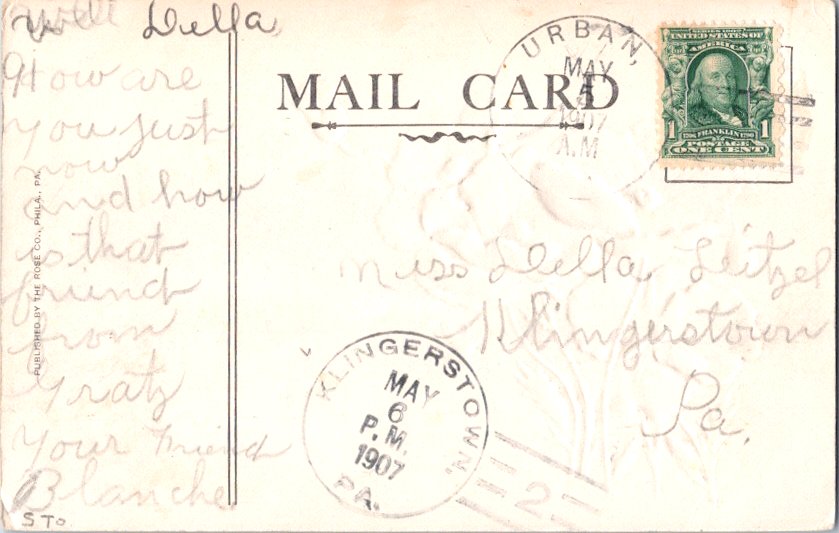 Well Della
How are
you just
now
and how
is that
friend
from
Gratz
Your Friend
Blanche
S To
PUBLISHED BY THE ROSE CO., PHILA., PA.
MAIL CARD
URBAN,
MAY
5
1907
A.M
SERIES 1902
UNITED STATES OF
AMERICA
1 FRANKLIN 1
POSTAGE
ONE CENT
Miss Della Leitzel
Klingerstown
Pa.
KLINGERSTOWN,
MAY
6
P.M.
1907
PA.
2